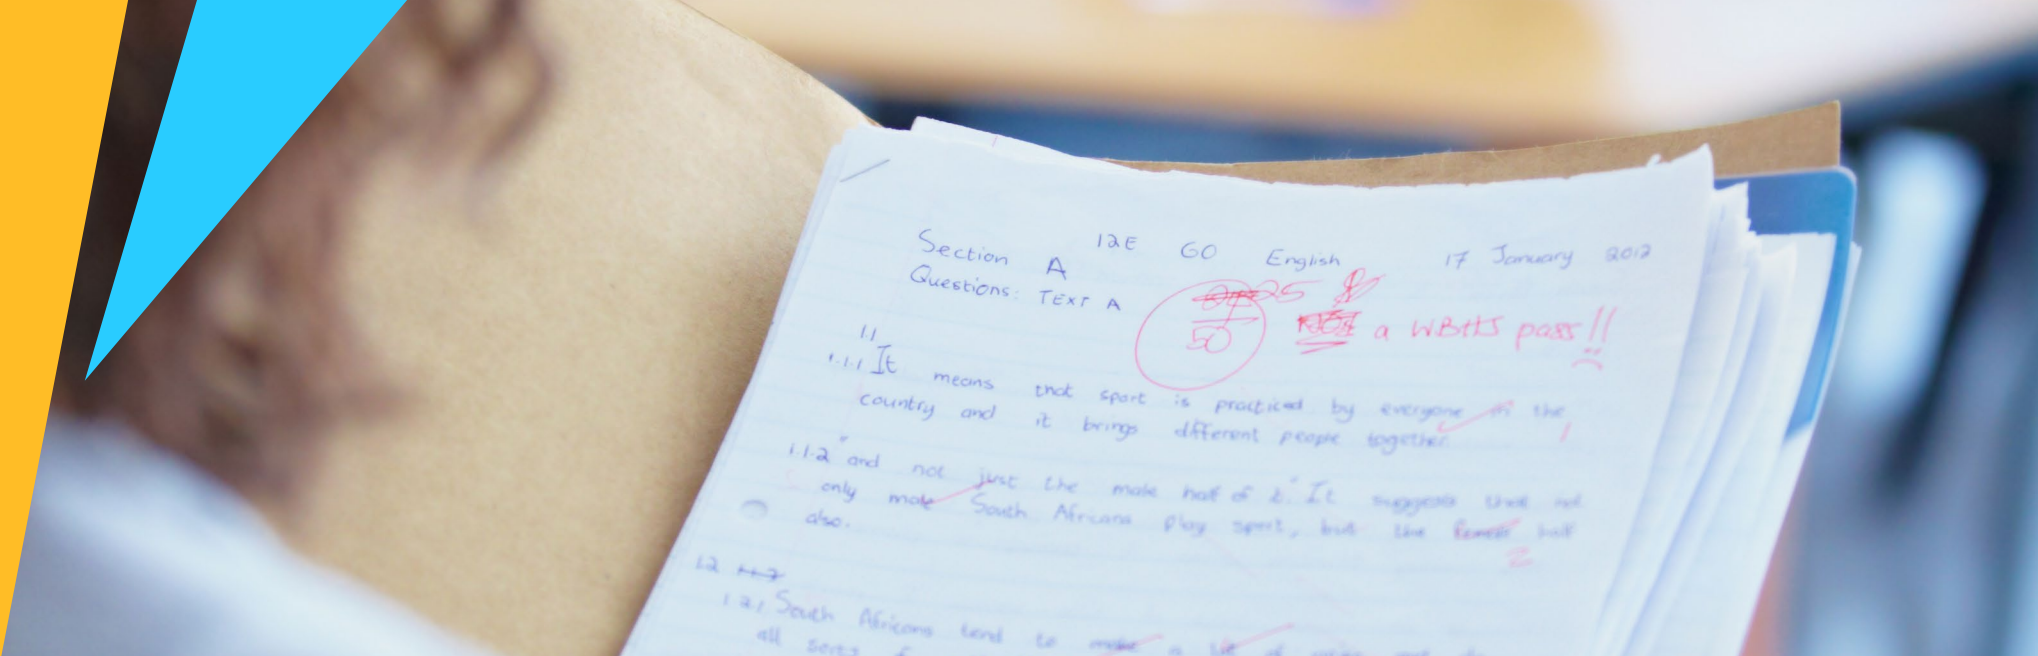 12E GO English 17 January 2012
Section A
Questions: TEXT A
25
50
a WBHS pass!!
1.1
1.1.1 It means that sport is practiced by everyone in the 1
country and it brings different people together.
1.1.2 "and not just the male half of it." It suggests that not
only male South Africans play sport, but the female half
also.
2
1.2
1.2.1 South Africans tend to make a lot of
all sorts